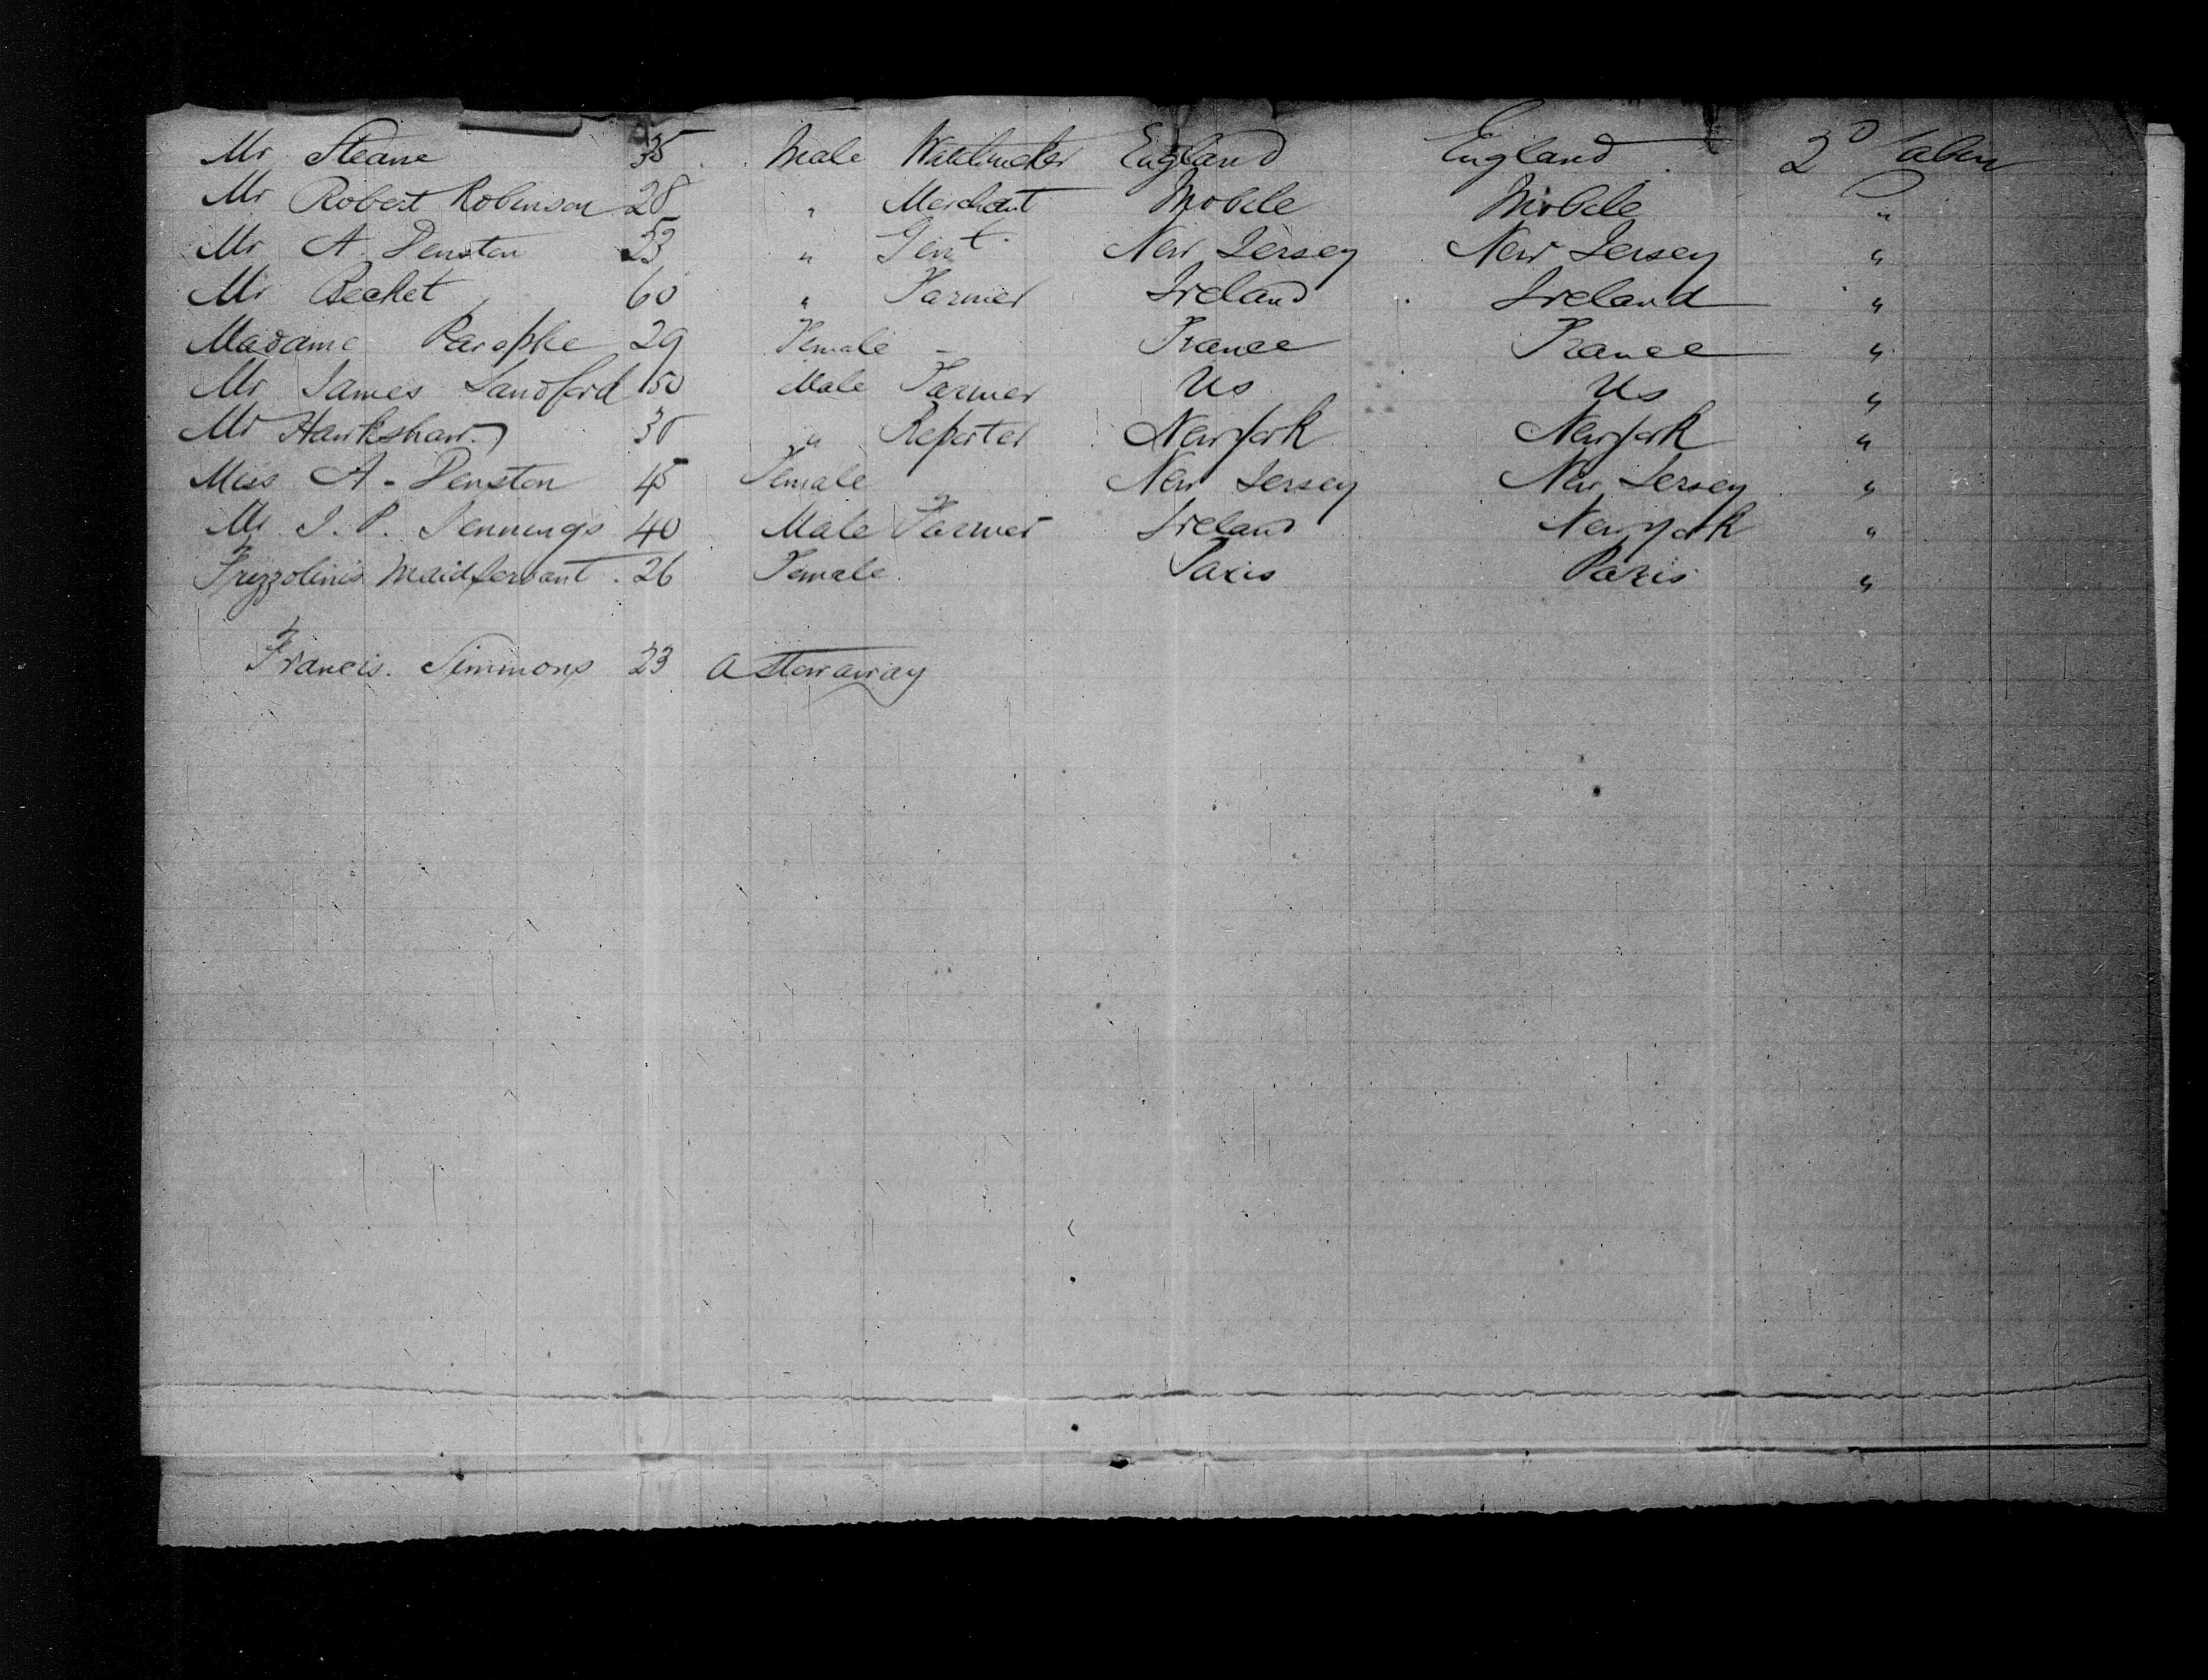 Mr Steane 35 Male Watchmaker England England 2D Cabin
Mr Robert Robinson 28 " Merchant Mobile Mobile "
Mr A Denston 53 " Gent. New Jersey New Jersey "
Mr Becket 60 " Farmer Ireland Ireland "
Madame 29 Female - France France "
Mr James Sandford 50 Male Farmer Us Us "
Mr Hawkshaw 30 " Reporter New York New York "
Miss A - Denston 45 Female New Jersey New Jersey "
Mr J. P. Jennings 40 Male Farmer Ireland New York "
Frezzolinis Maidservant . 26 Female Paris Paris "
Francis. Simmons 23 a stowaway